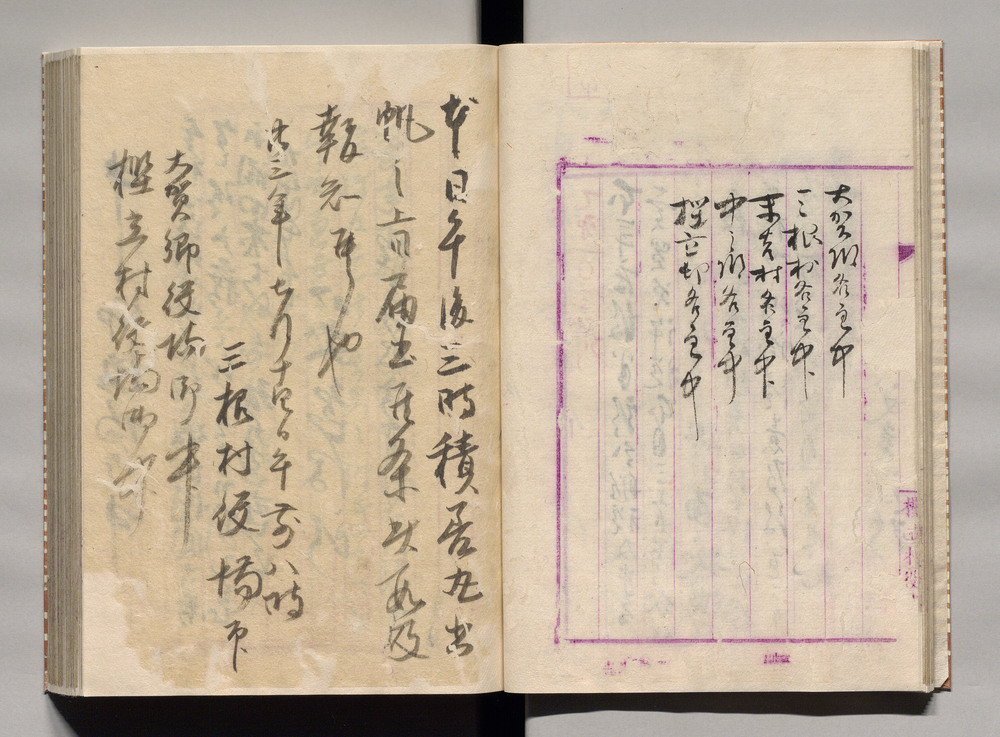 大賀郷各主中
三根村各主中
末吉村各主中
中之郷各主中
樫立邨各主中
樫立村役
本日午後三時積吾丸出
帆之上同届出候条此段
報知候也
三年七月十四日午前八時
三根村役場印
大賀郷役場御中
樫立村役場御中